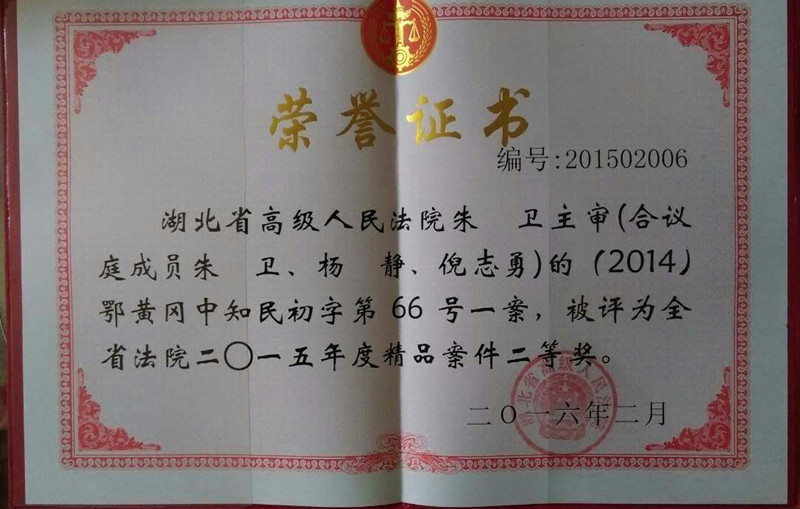 荣誉证书
编号:201502006
湖北省高级人民法院朱　卫主审(合议
庭成员朱　卫、杨　静、倪志勇)的（2014）
鄂黄冈中知民初字第 66 号一案，被评为全
省法院二〇一五年度精品案件二等奖。
湖北省高级人民法院
二〇一六年二月